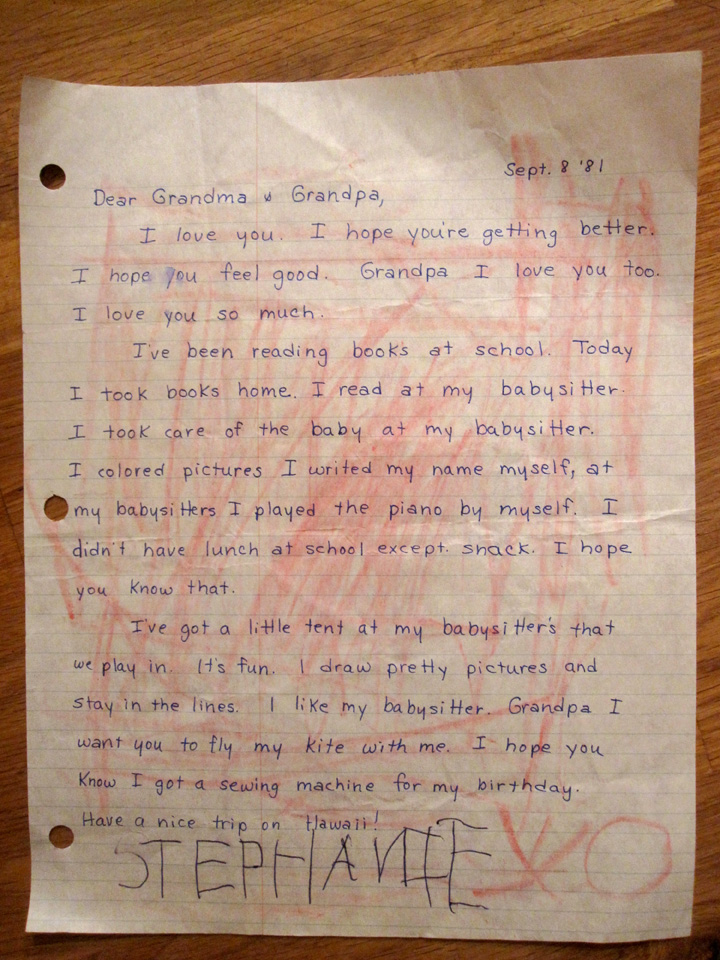 Sept. 8 '81
Dear Grandma & Grandpa,
I love you. I hope you're getting better.
I hope you feel good. Grandpa I love you too.
I love you so much.
I've been reading books at school. Today
I took books home. I read at my babysitter.
I took care of the baby at my babysitter.
I colored pictures I writed my name myself, at
my babysitters I played the piano by myself. I
didn't have lunch at school except. snack. I hope
you know that.
I've got a little tent at my babysitter's that
we play in. It's fun. I draw pretty pictures and
stay in the lines. I like my babysitter. Grandpa I
want you to fly my kite with me. I hope you
know I got a sewing machine for my birthday.
Have a nice trip on Hawaii!
STEPHANIE XO